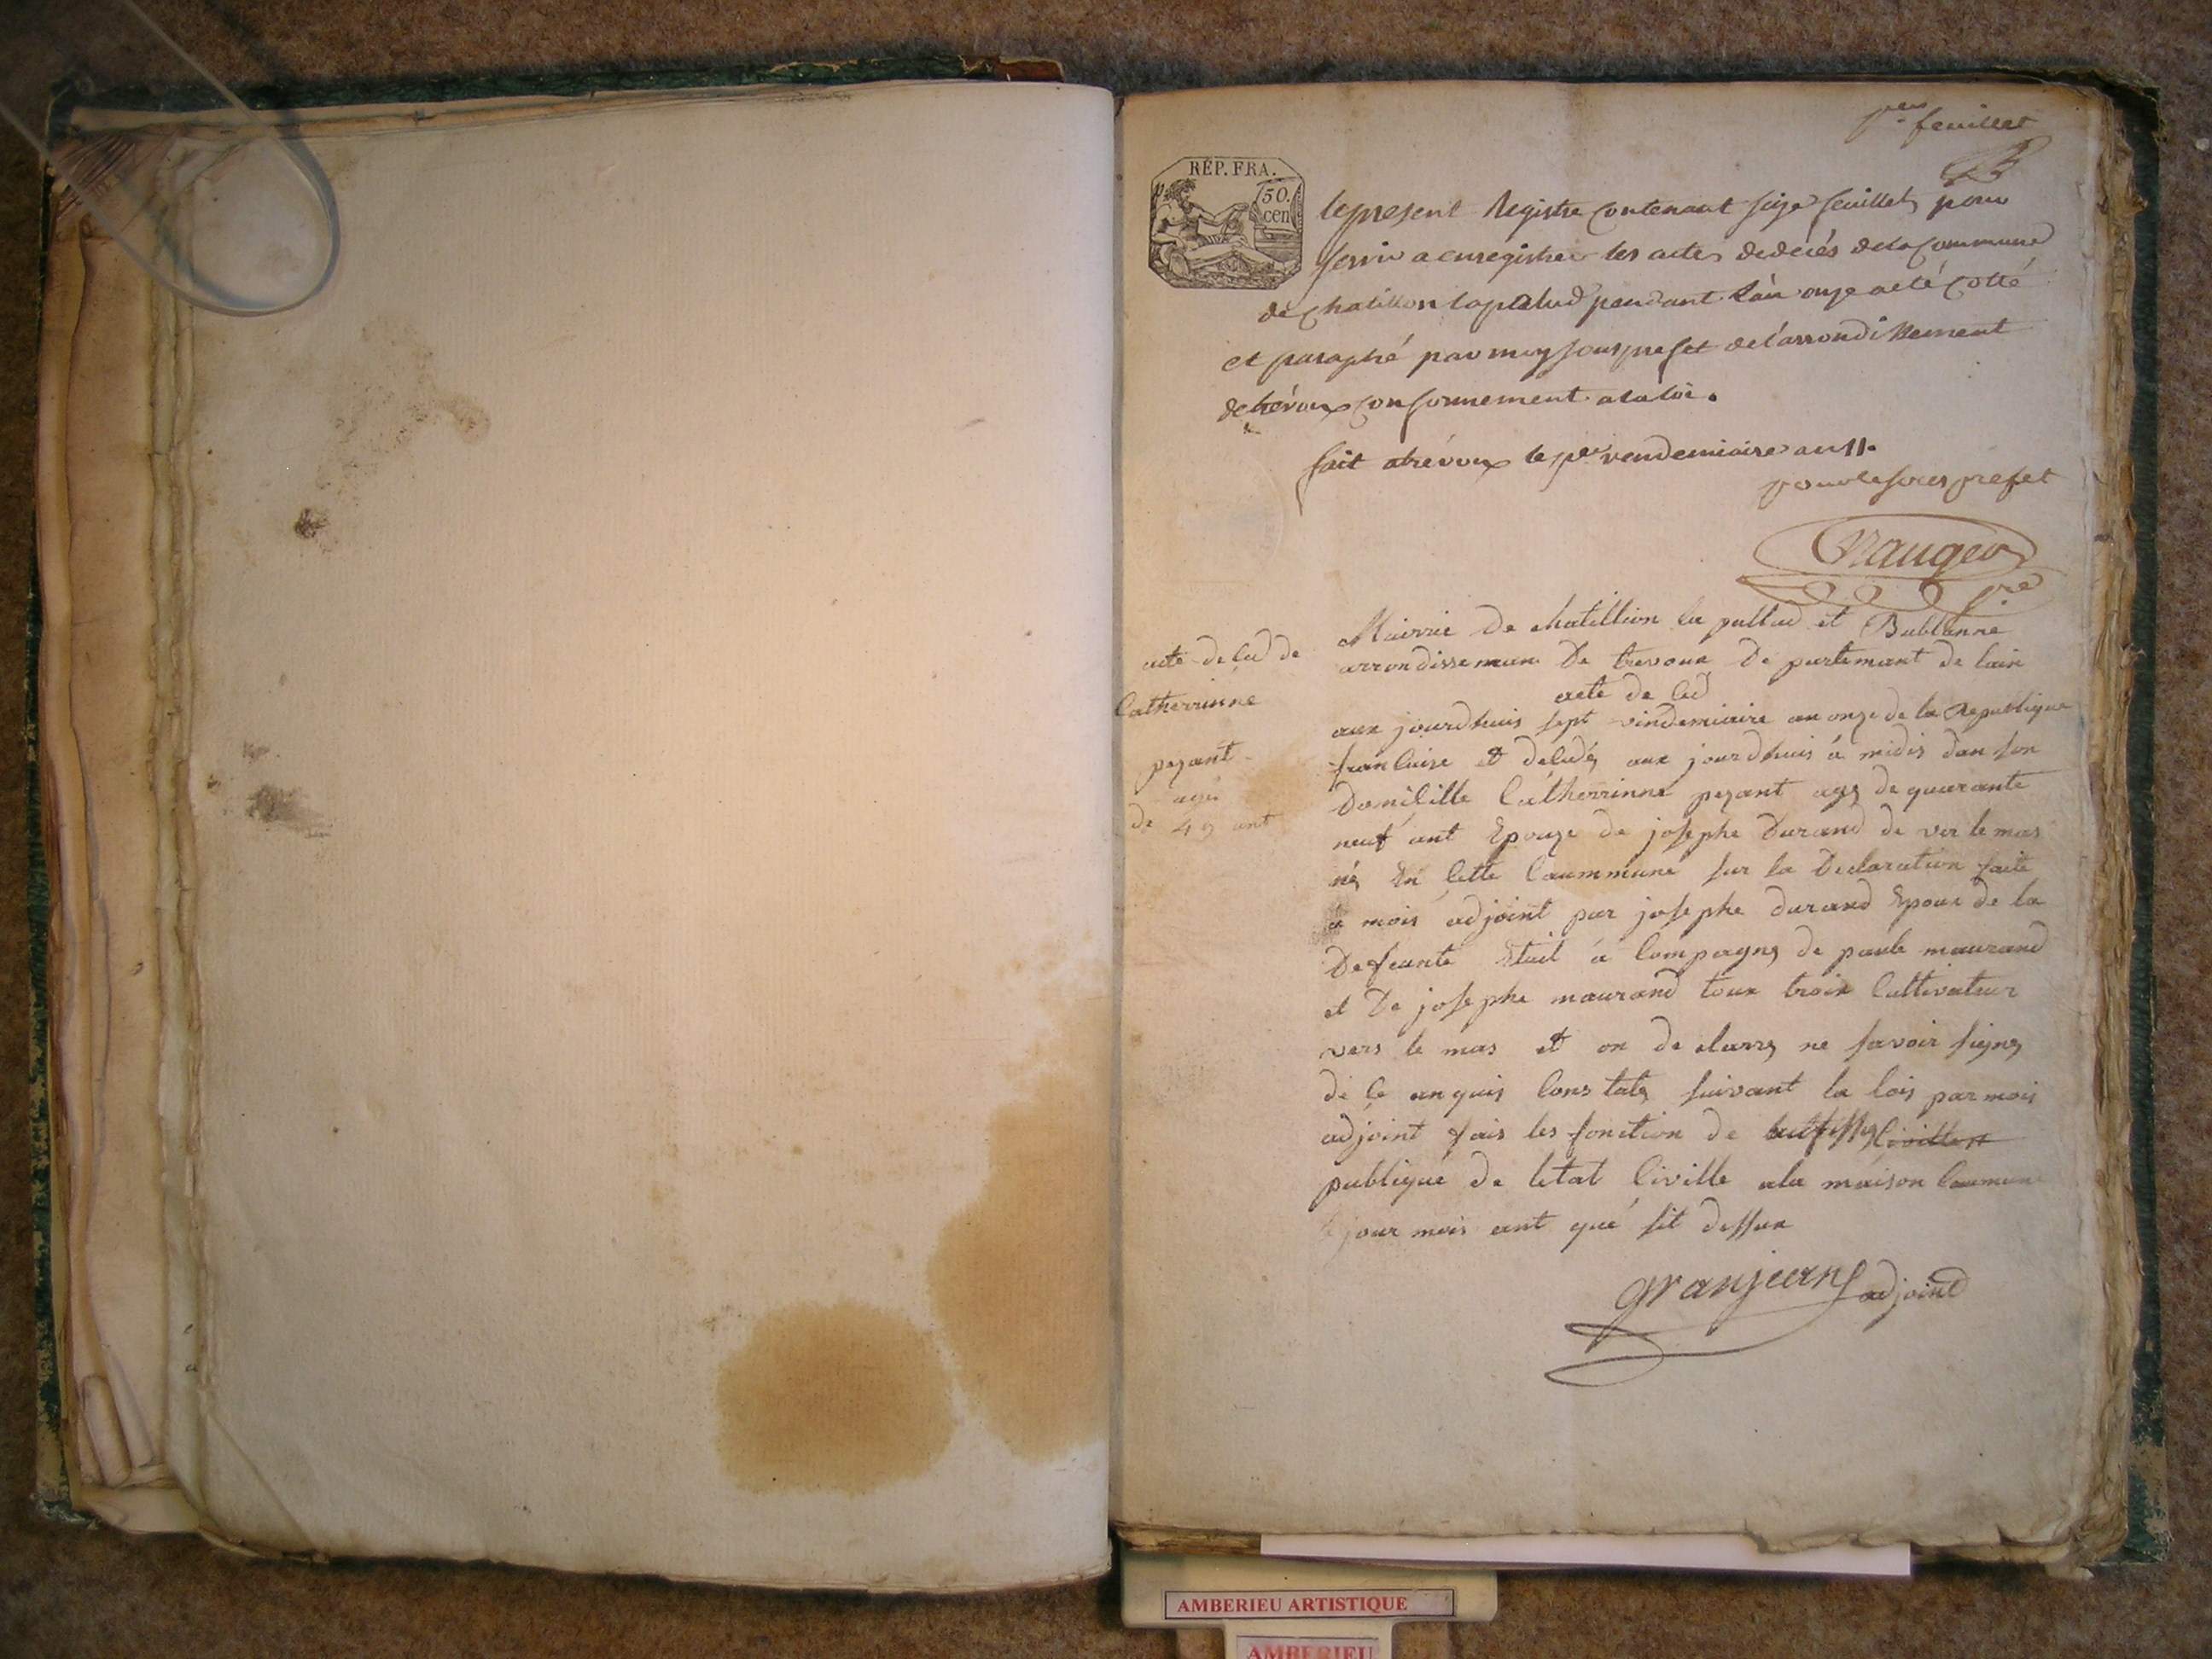 per feuillet
REP. FRA.
50.
cen
le present Registre contenant seize feuillets pour
servir a enregistrer les actes de décés de la Commune
de chatillon la palud pendant l'an onze a eté Cotté
et paraphé par moy sous prefet de l'arrondissement
de trévoux conformement a la loi.
fait a trévoux le per vendemiaire an 11.
pour le sous prefet
Mairrie de chatillion la pallud et Bublanne
arrondisseman De trevoux De partemant de lain
acte de ced
aux jourdhuis sept vindemiaire an onze de la Republique
francaise et décédés aux jourdhuis á midis dan son
Domicille Catherrinne pezant agés de quarante
neuf ant Epouze de josephe Durand de ver le mas
nés En cette Caummune sur la Declaration faite
a mois adjoint par josephe durand Epoux de la
Defeunte Etail á Compagnes de paule maurand
et De josephe maurand toux troix Cultivateur
vers le mas et on de clarrés ne savoir signés
de ce an quis Cons tatés suivant la lois par mois
adjoint fais les fonction de
publique de letat Civille a la maison Caumune
jour mois ant que sit dessux
granjean adjoint
acte de ced de
Catherrinne
pezant
agés
de 49 ant
AMBERIEU ARTISTIQUE
AMBERIEU